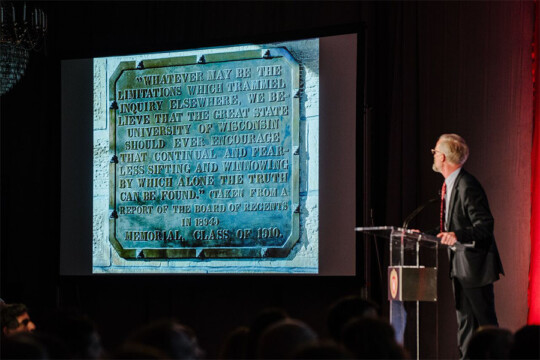 "WHATEVER MAY BE THE
LIMITATIONS WHICH TRAMMEL
INQUIRY ELSEWHERE, WE BE-
LIEVE THAT THE GREAT STATE
UNIVERSITY OF WISCONSIN
SHOULD EVER ENCOURAGE
THAT CONTINUAL AND FEAR-
LESS SIFTING AND WINNOWING
BY WHICH ALONE THE TRUTH
CAN BE FOUND." (TAKEN FROM A
REPORT OF THE BOARD OF REGENTS
IN 1894)
MEMORIAL, CLASS OF 1910.